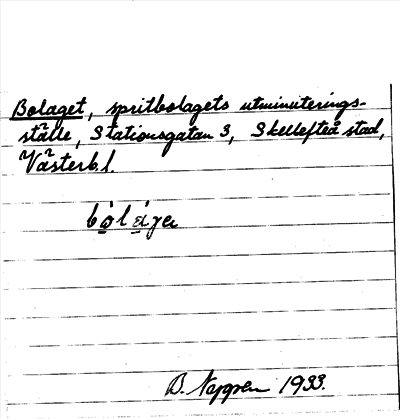 Bolaget, spritbolagets utminuterings-
ställe, Stationsgatan 3, Skellefteå stad,
Västerb.l.
B. Nygren 1933.